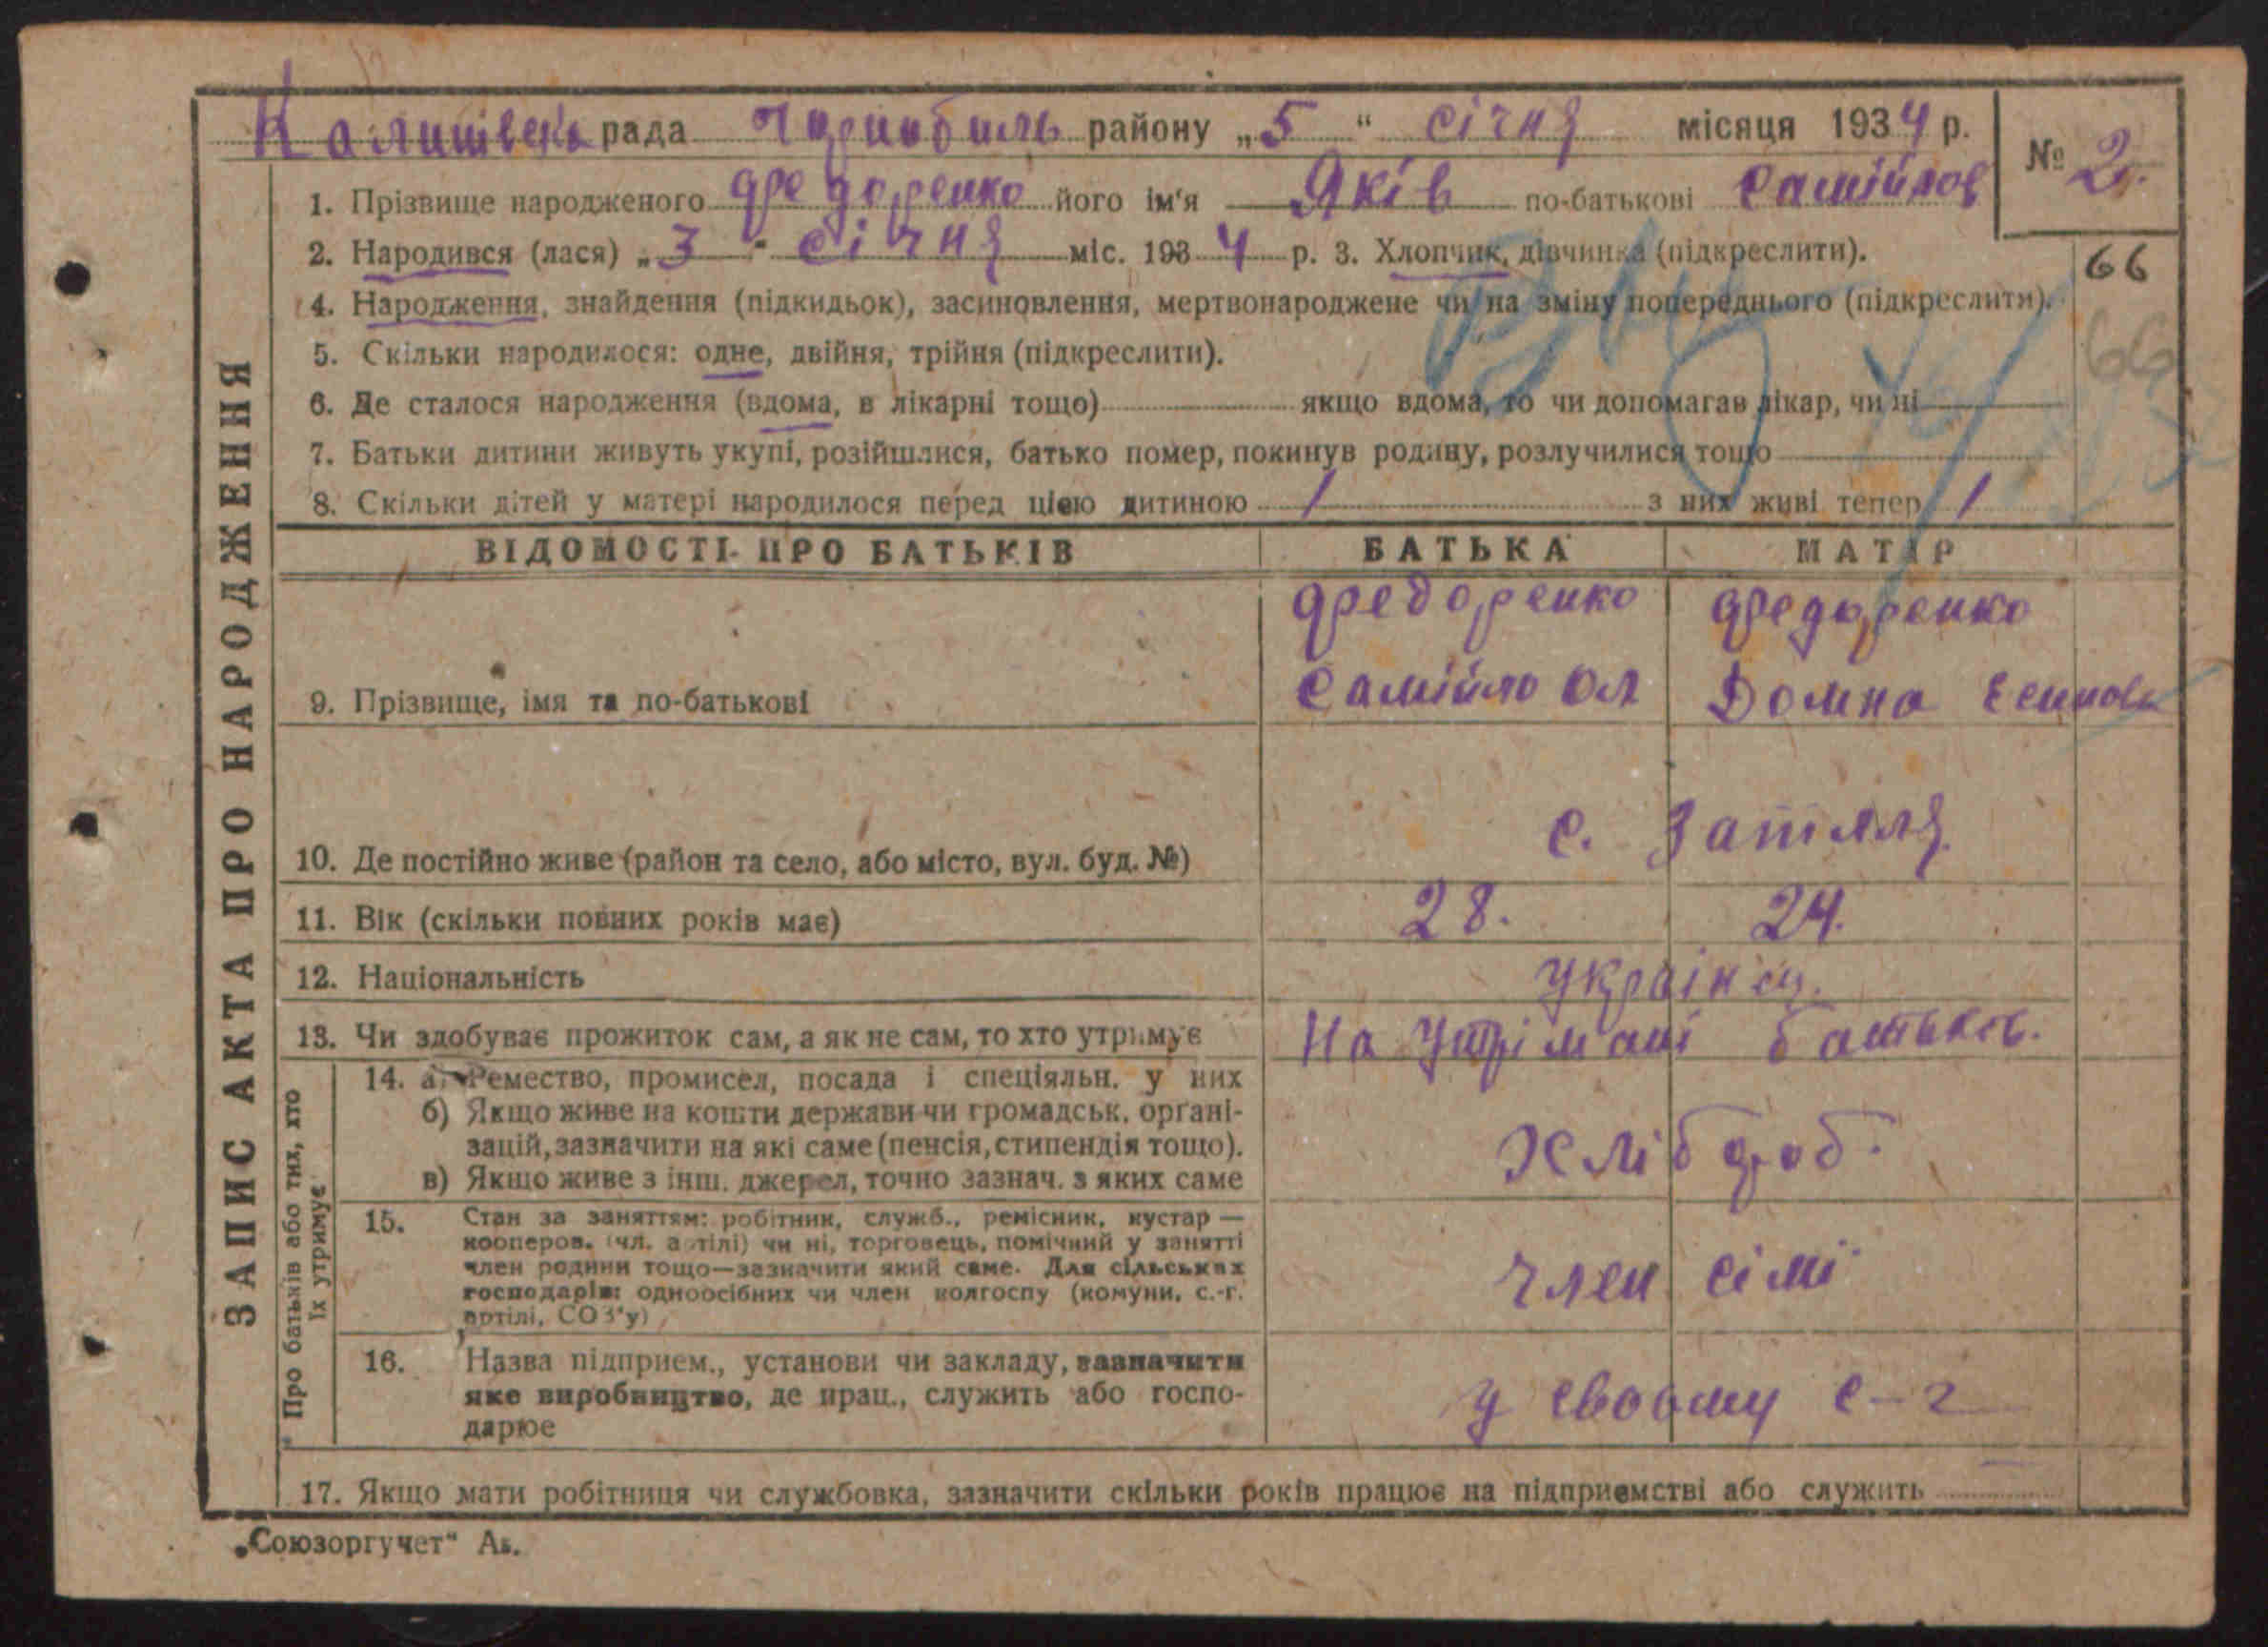 рада Чорнобиль району „5" січня місяця 1934 р. № 2.
1. Прізвище народженого Федоренко його ім'я Яків по-батькові Самійлов
2. Народився (лася) „3" січня міс. 1934 р. 3. Хлопчик, дівчинка (підкреслити). 66
4. Народження, знайдення (підкидьок), засиновлення, мертвонароджене чи на зміну попереднього (підкреслити).
5. Скільки народилося: одне, двійня, трійня (підкреслити). 66
6. Де сталося народження (вдома, в лікарні тощо) якщо вдома, то чи допомагав лікар, чи ні
7. Батьки дитини живуть укупі, розійшлися, батько помер, покинув родину, розлучилися тощо
8. Скільки дітей у матері народилося перед цією дитиною 1 з них живі тепер 1
ЗАПИС АКТА ПРО НАРОДЖЕННЯ
ВІДОМОСТІ ПРО БАТЬКІВ БАТЬКА МАТІР
Федоренко Федоренко
9. Прізвище, імя та по-батькові Самійло Ол Домна
10. Де постійно живе (район та село, або місто, вул. буд. №) с.
11. Вік (скільки повних років має) 28. 24.
12. Національність українц.
13. Чи здобуває прожиток сам, а як не сам, то хто утримує На утрімані батьків.
Про батьків або тих, хто
їх утримує
14. а) Ремество, промисел, посада і спеціяльн. у них
б) Якщо живе на кошти держави чи громадськ. органі-
зацій, зазначити на які саме (пенсія, стипендія тощо). Хлібороб.
в) Якщо живе з інш. джерел, точно зазнач. з яких саме
15. Стан за заняттям: робітник, служб., ремісник, кустар —
кооперов. (чл. артілі) чи ні, торговець, помічний у занятті
член родини тощо—зазначити який саме. Для сільських член сімї
господарів: одноосібних чи член колгоспу (комуни, с.-г.
артілі, СОЗ'у)
16. Назва підприєм., установи чи закладу, зазначити
яке виробництво, де прац., служить або госпо- у своому с-г
дарює
17. Якщо мати робітниця чи службовка, зазначити скільки років працює на підприємстві або служить
„Союзоргучет"